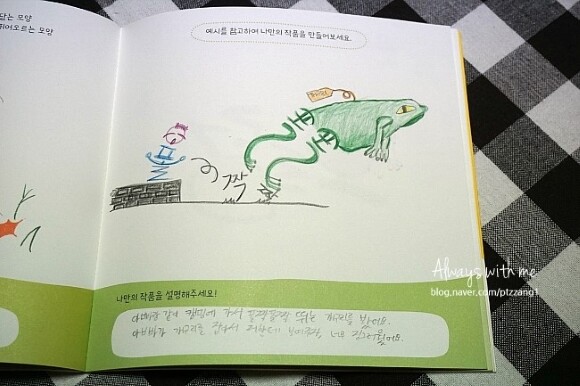 모양
뛰어오르는 모양
예시를 참고하여 나만의 작품을 만들어보세요.
짝
나만의 작품을 설명해주세요!
아빠와 같이 캠핑에 가서 폴짝폴짝 뛰는 개구리를 봤어요.
아빠가 개구리를 잡아서 저한테 너무 징그러웠어요.
Always with me
blog.naver.com/ptzzang1